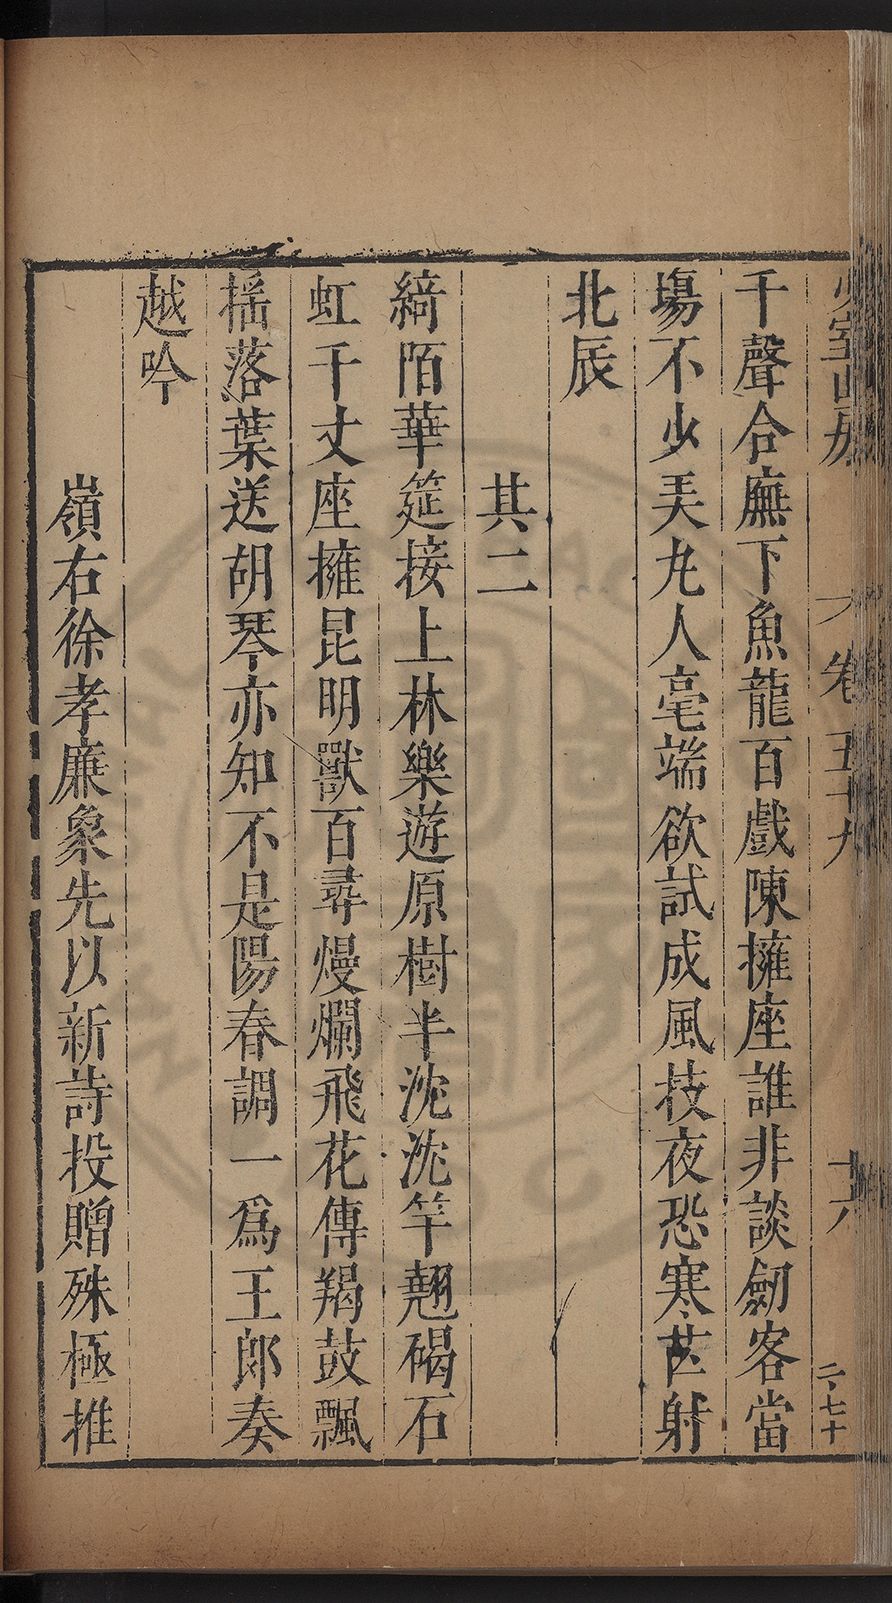 少室山房
卷五十九
十六
二·七十
千聲合廡下魚龍百戲陳擁座誰非談劒客當
塲不少美丸人毫端欲試成風技夜恐寒芒射
北辰
其二
綺陌華筵接上林樂遊原樹半沈沈竿翹碣石
虹千丈座擁昆明獸百尋熳爛飛花傳羯鼓飄
揺落葉送胡琴亦知不是陽春調一爲王郎奏
越吟
嶺右徐孝廉象先以新詩投贈殊極推